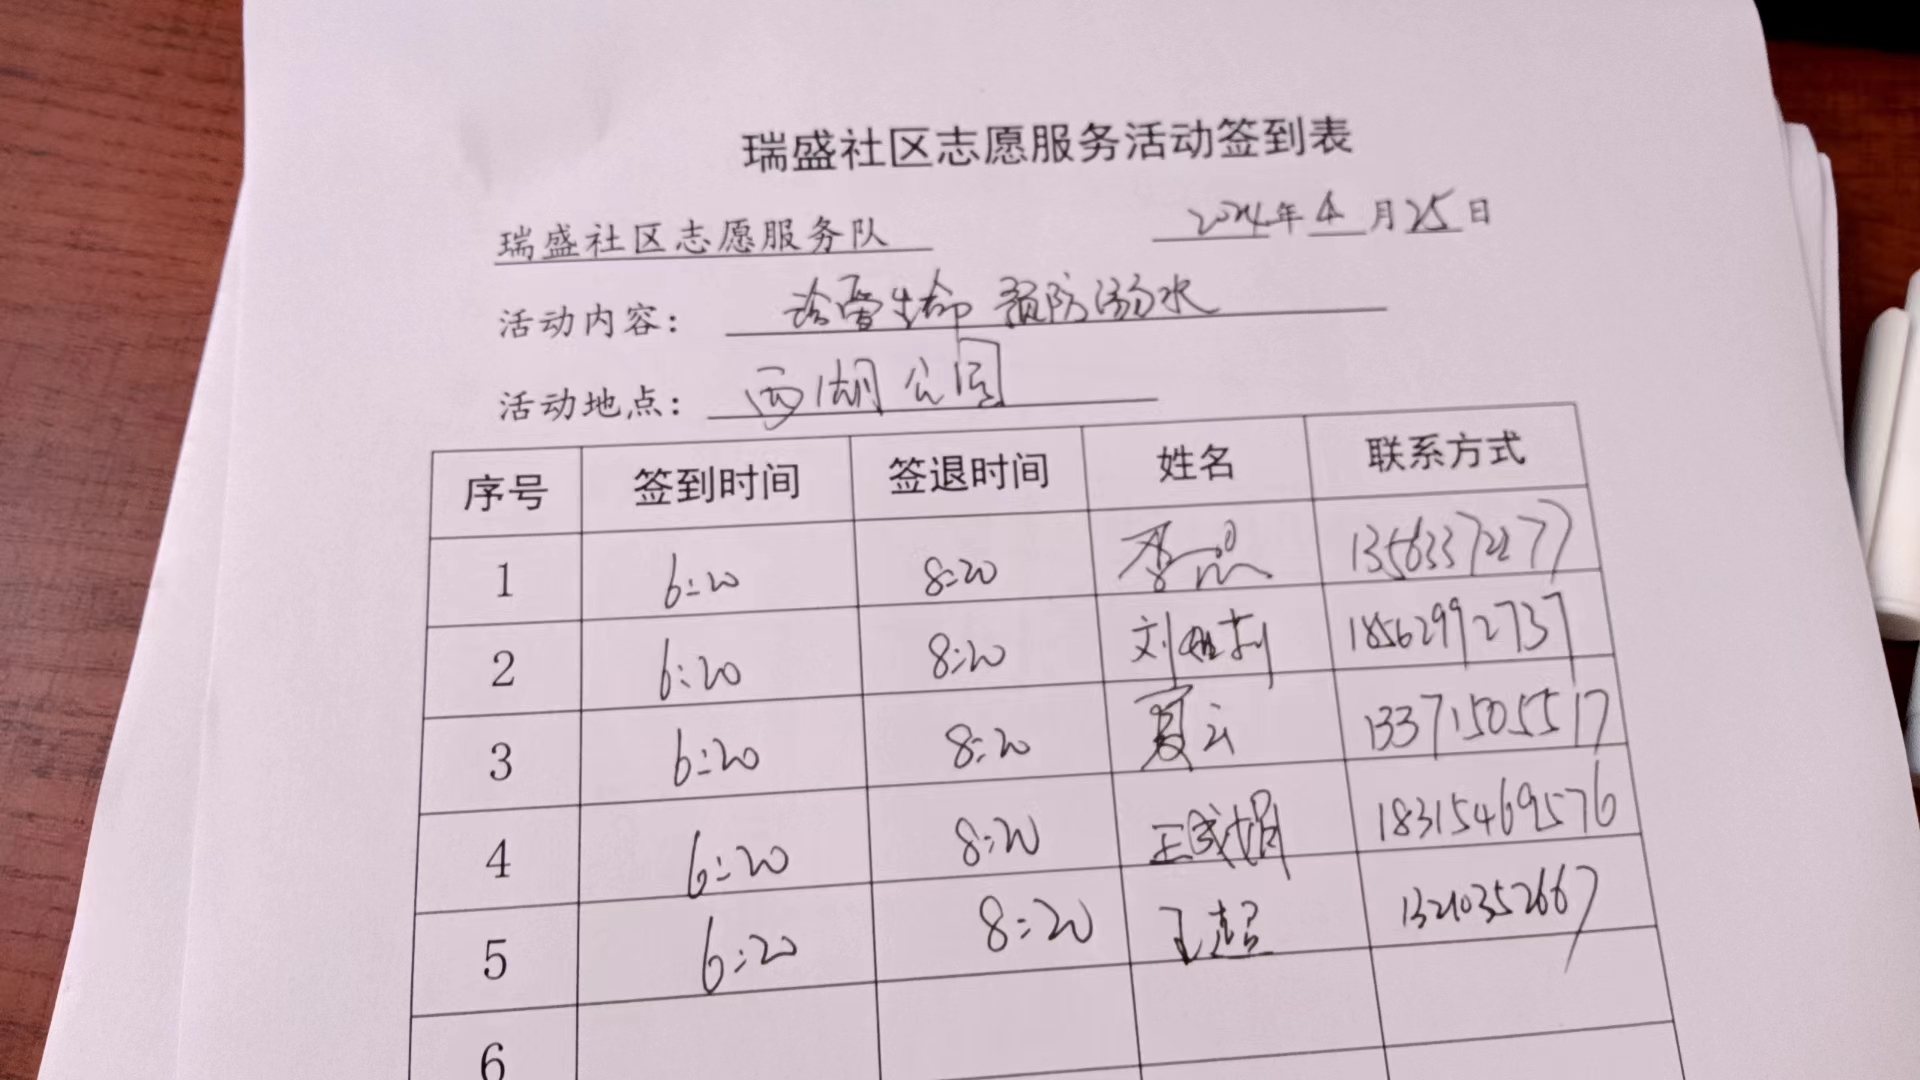 瑞盛社区志愿服务活动签到表
瑞盛社区志愿服务队 2024年4月25日
活动内容： 珍爱生命 预防溺水
活动地点： 西湖公园
序号 签到时间 签退时间 姓名 联系方式
1 6:20 8:20 李
2 6:20 8:20 刘 18562992737
3 6:20 8:20 夏云 13371505517
4 6:20 8:20 王成娟 18315469576
5 6:20 8:20 王超 13210352667
6